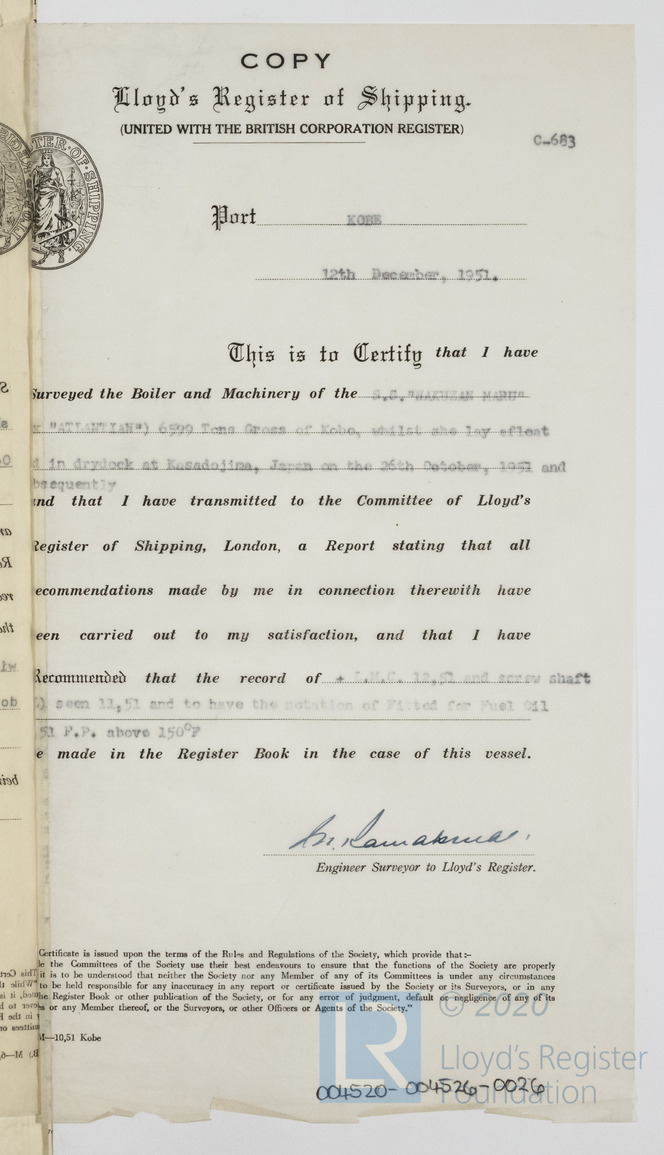 COPY
Lloyd's Register of Shipping.
(UNITED WITH THE BRITISH CORPORATION REGISTER)
C-683
Port KOBE
12th December, 1951.
This is to Certify that I have
Surveyed the Boiler and Machinery of the S.S."HAKUZAN MARU"
x "ATLANTIAN") 6599 Tons Gross of Kobe, whilst she lay afloat
d in drydock at Kasadojima, Japan on the 26th October, 1951 and
bsequently
and that I have transmitted to the Committee of Lloyd's
Register of Shipping, London, a Report stating that all
ecommendations made by me in connection therewith have
een carried out to my satisfaction, and that I have
Recommended that the record of + L.M.C. 12,51 and screw shaft
) seen 11,51 and to have the notation of Fitted for Fuel Oil
51 F.P. above 150°F
e made in the Register Book in the case of this vessel.
Engineer Surveyor to Lloyd's Register.
Certificate is issued upon the terms of the Rules and Regulations of the Society, which provide that:—
le the Committees of the Society use their best endeavours to ensure that the functions of the Society are properly
it is to be understood that neither the Society nor any Member of any of its Committees is under any circumstances
to be held responsible for any inaccuracy in any report or certificate issued by the Society or its Surveyors, or in any
he Register Book or other publication of the Society, or for any error of judgment, default or negligence of any of its
s or any Member thereof, or the Surveyors, or other Officers or Agents of the Society."
M—10,51 Kobe
© 2020
LR
Lloyd's Register
Foundation
004520-004526-0026